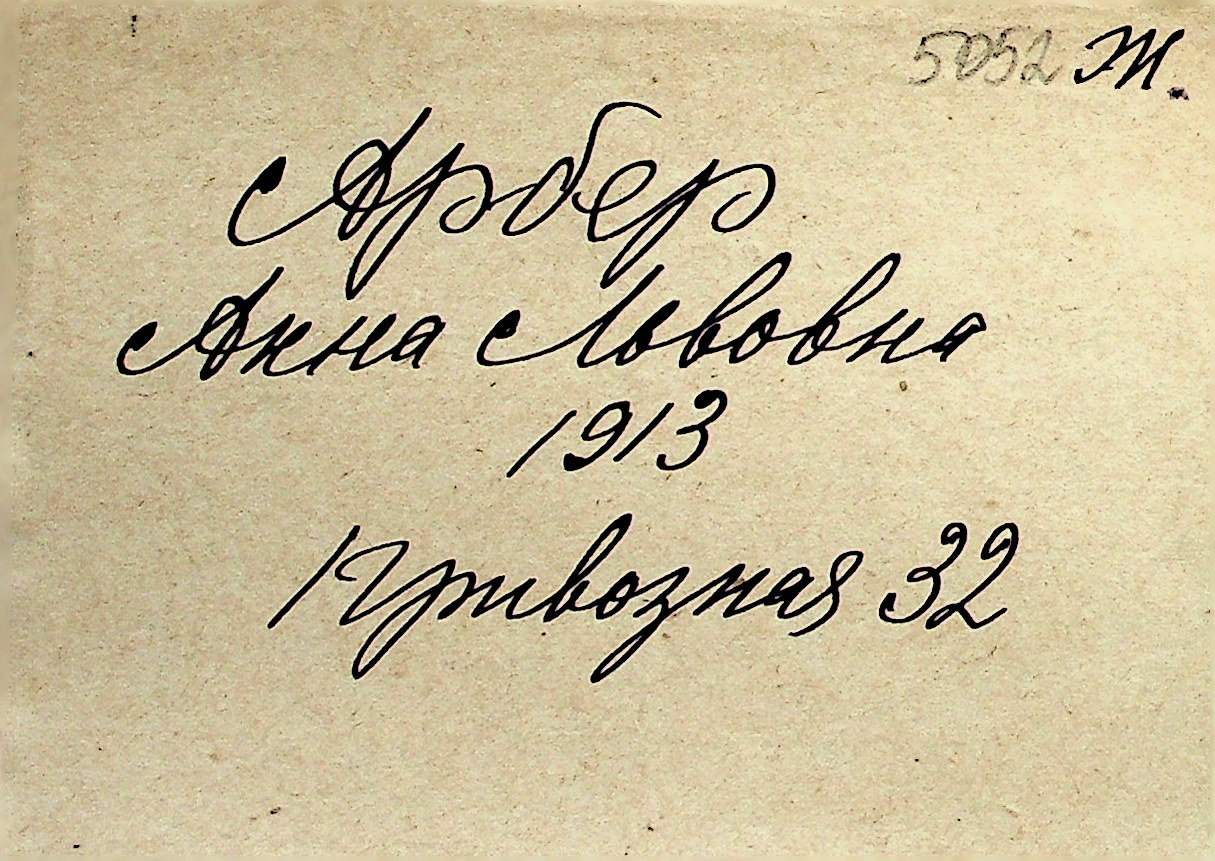 5052 Ж.
Арбер
Анна Львовна
1913
Привозная 32